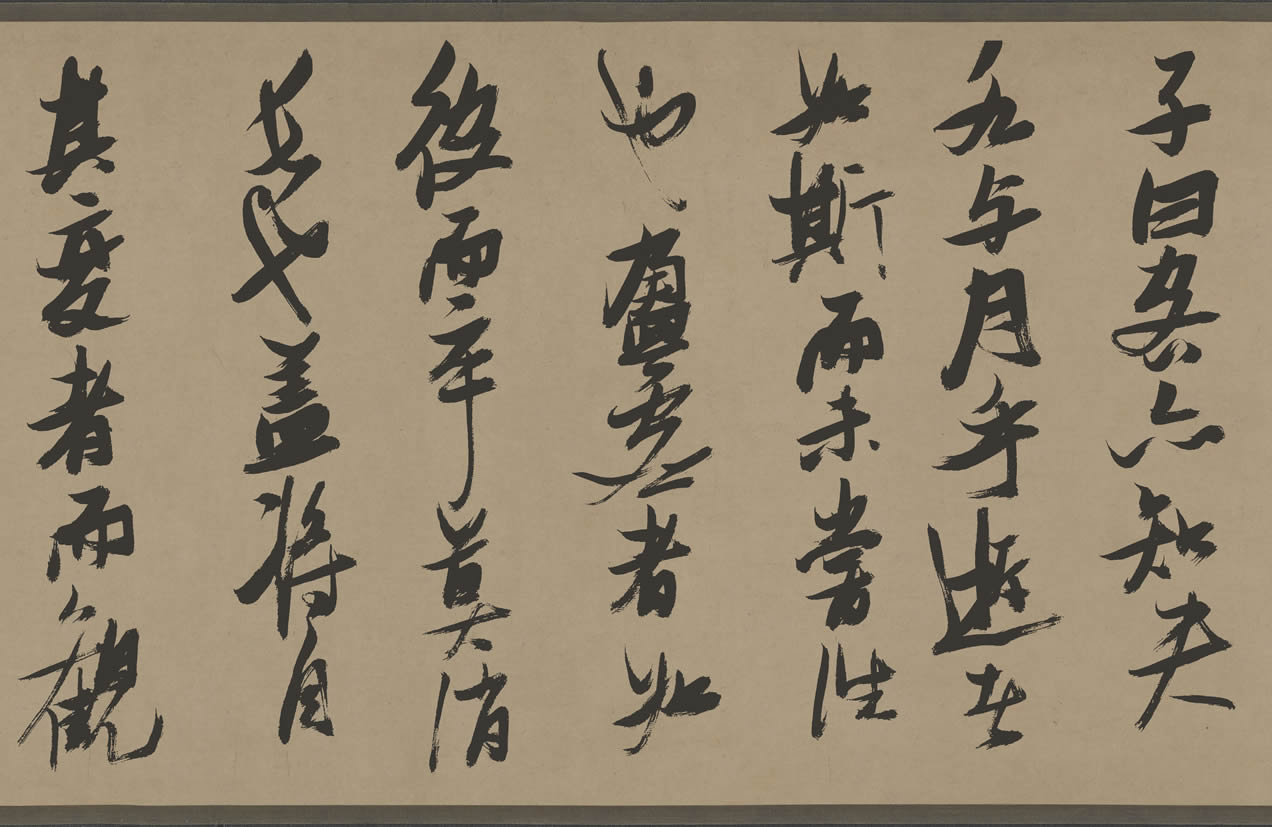 子曰客亦知夫
水与月乎逝者
如斯而未嘗往
也盈虚者如
彼而卒莫消
長也盖将自
其變者而觀